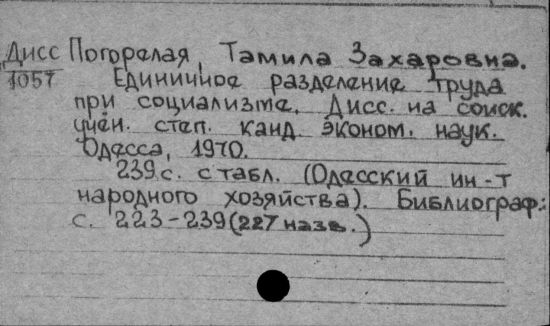 Дисс Погорелая, Тамила Захаровна.
1057 Единичное разделение труда
при социализме. Дисс. на соиск.
учен. степ. канд. эконом. наук.
Одесса, 1970.
239 с. с табл. (Одесский ин-т
народного хозяйства). Библиограф.:
с. 223-239 (227 назв.)